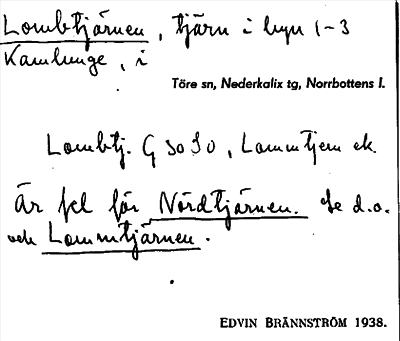 Lombtjärnen, tjärn i byn 1-3
Kamlunge, i
Töre sn, Nederkalix tg, Norrbottens l.
Lombtj. G 5o SO, Lommtjern ek.
Är fel för Nördtjärnen. Se d.o.
och Lommtjärnen.
EDVIN BRÄNNSTRÖM 1938.